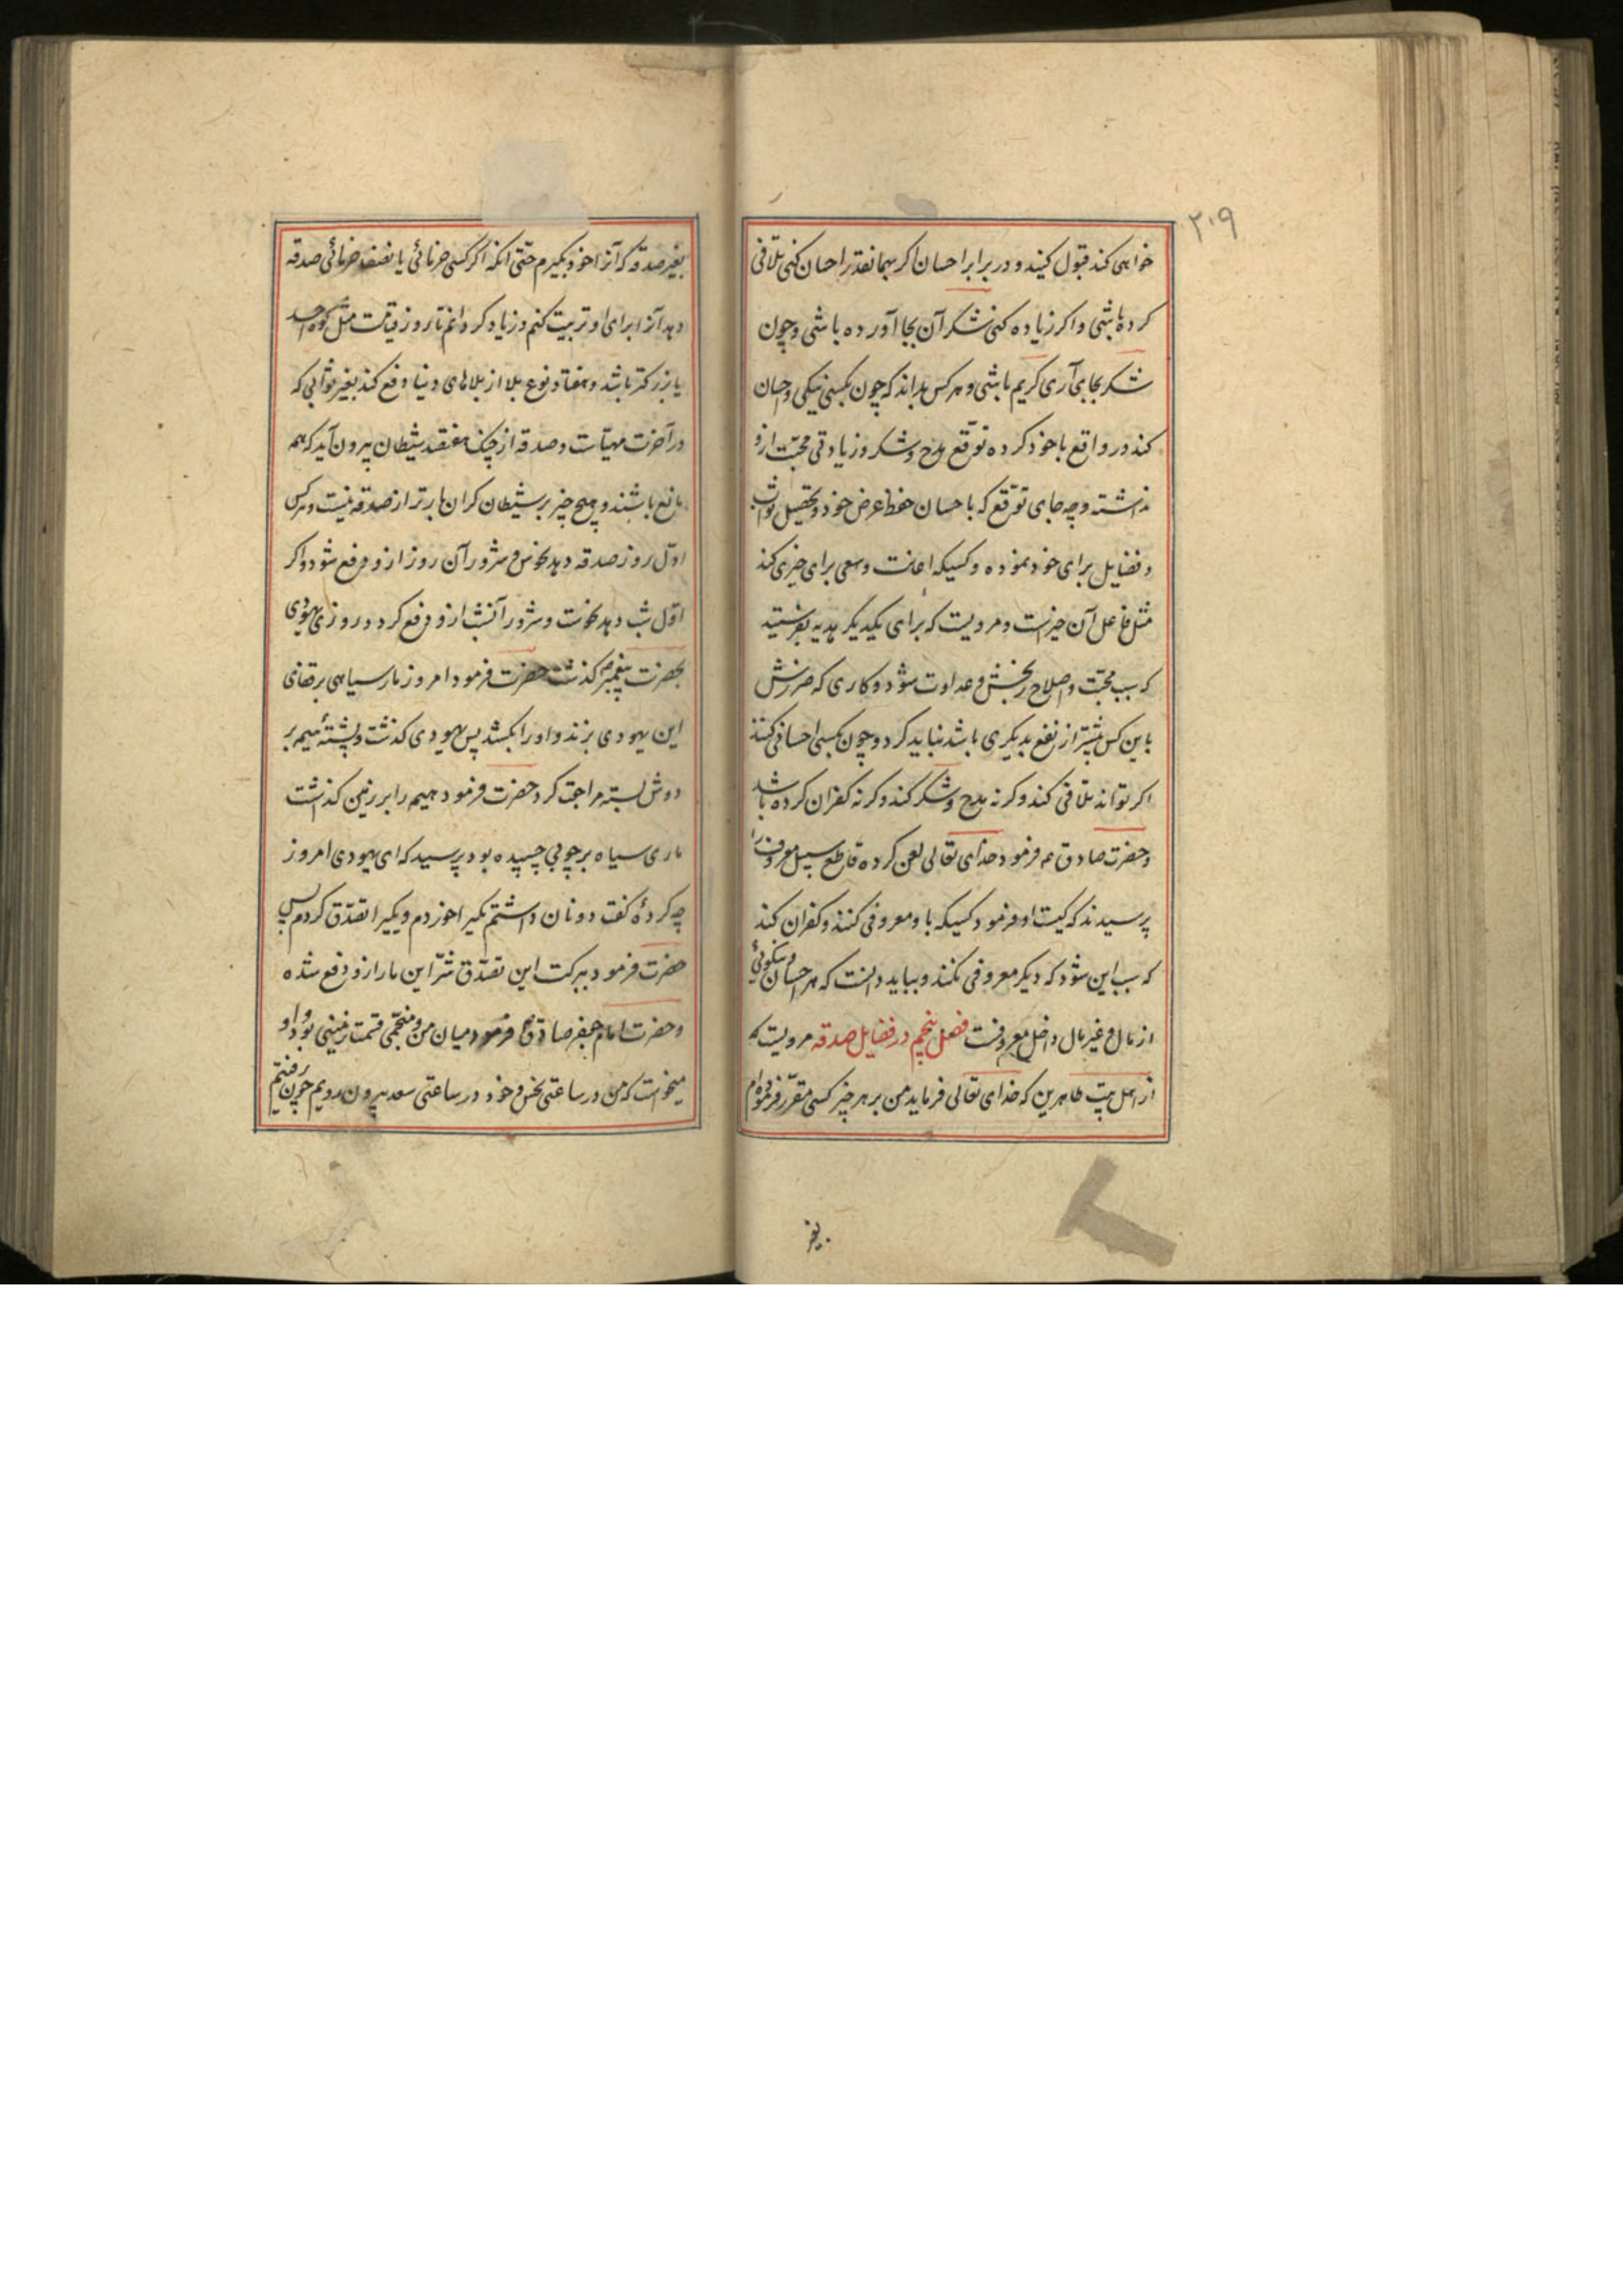 ۲۰۹
خواهی کند قبول کنید و در برابر احسان اگر بهمانقدر احسان کنی تلافی
کرده باشی و اکر زیاده کنی شکر آن بجا آورده باشی و چون
شکر بجای آری کریم باشی و هر کس بداند که چون بکسی نیکی و احسان
کند در واقع با خود کرده توقّع مدح و شکر و زیادتی محبّت ازو
نداشته و چه جای توقّع که با احسان حفظ عرض خود و تحصیل ثواب
و فضایل برای خود نموده و کسیکه اعانت و سعی برای خیری کند
مثل فاعل آن خیر است و مرویست که برای یکدیکر هدیه بفرستید
که سبب محبّت و اصلاح رنجش و عداوت شود و کاری که ضررش
باین کس بیشتر از نفع بدیکری باشد نباید کرد و چون بکسی احسانی کنند
اکر تواند تلافی کند و کرنه مدح و شکر کند و کرنه کفران کرده باشد
و حضرت صادق ع م فرمود خدای تعالی لعن کرده قاطع سبیل معروف را
پرسیدند که کیست او فرمود کسیکه با و معروفی کنند و کفران کند
که سبب این شود که دیکر معروفی نکنند و بباید دانست که هر احسان و نیکوئی
از مال و غیر مال داخل معروفست فصل پنجم در فضایل صدقه مرویست که
از اهل بیت طاهرین که خدای تعالی فرماید من بر هر چیز کسی مقرّر فرموده ام
بغیر
بغیر صدقه که آنرا خود بکیرم حتّی انکه اکر کسی خرمائی یا نصف خرمائی صدقه
دهد آنرا برای او تربیت کنم و زیاد کردانم تا روز قیامت مثل کوه احد
یا بزرکتر باشد و هفتاد نوع بلا از بلاهای دنیا دفع کند بغیر ثوابی که
در آخرت مهیّاست و صدقه از چنک هفتصد شیطان بیرون آید که همه
مانع باشند و هیچ چیز بر شیطان کران بارتر از صدقه نیست و هر کس
اوّل روز صدقه دهد نحوس و شرور آن روز ازو دفع شود و اکر
اوّل شب دهد نحوست و شرور آنشب ازو دفع کردد روزی یهودی
بحضرت پیغمبر ص کذشت حضرت فرمود امروز مار سیاهی بر قفای
این یهودی بزند و او را بکشد پس یهودی کذشت و پشتهٔ هیمه بر
دوش بسته مراجعت کرد حضرت فرمود هیمه را بر زمین کذاشت
ماری سیاه بر چوبی چسپیده بود پرسید که ای یهودی امروز
چه کردهٔ کفت دو نان داشتم یکیرا خوردم و یکیرا تصدّق کردم پس
حضرت فرمود ببرکت این تصدّق شرّ این مار ازو دفع شده
و حضرت امام جعفر صادق ع فرمود میان من و منجّمی قسمت زمینی بود و او
میخواست که من در ساعتی نحس و خود در ساعتی سعد بیرون رویم چون رفتیم